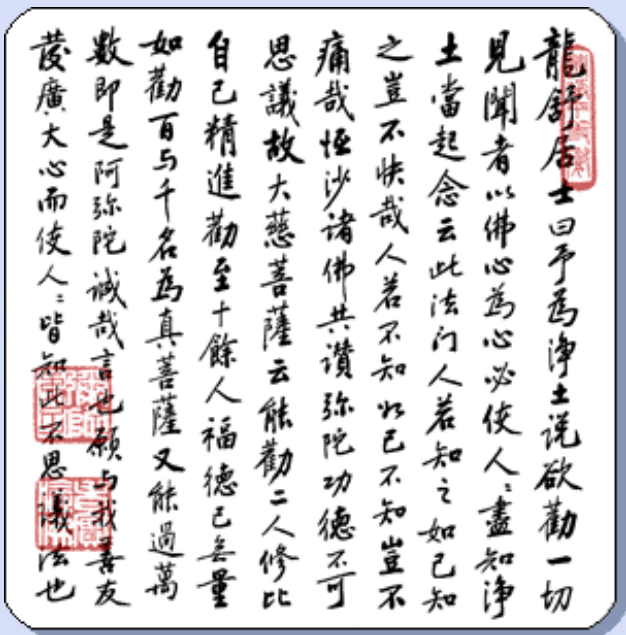 龍舒居士曰予為淨土說欲勸一切
見聞者以佛心為心必使人〻盡知淨
土當起念云此法门人若知之如己知
之豈不快哉人若不知如己不知豈不
痛哉恆沙諸佛共讚弥陀功德不可
思議故大慈菩薩云能勸二人修比
自己精進勸至十餘人福德已無量
如勸百与千名為真菩薩又能過萬
數即是阿弥陀誠哉言也願与我善友
發廣大心而使人〻皆知此不思議法也